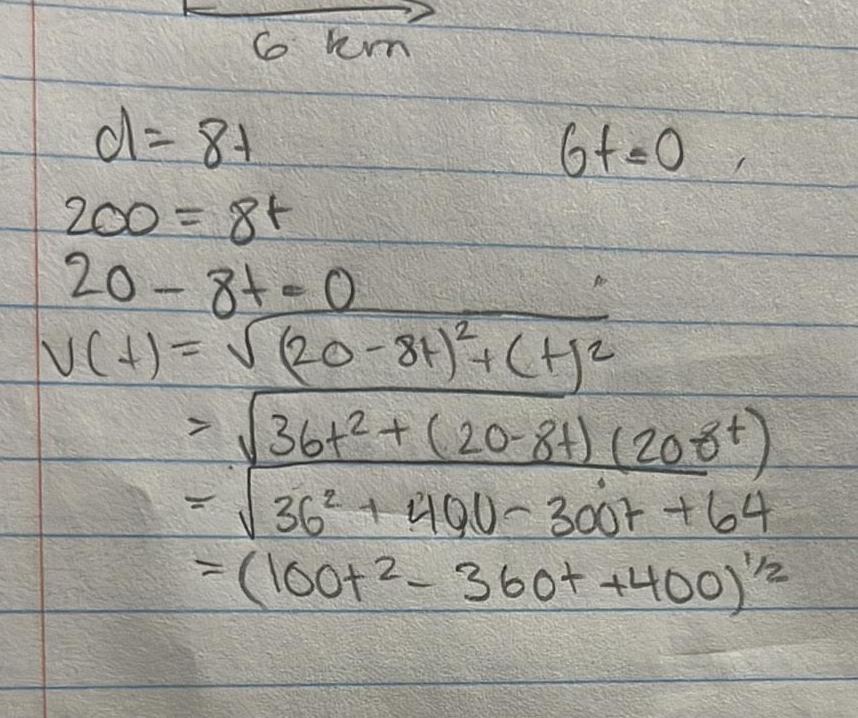 6 km
d = 8t
6t = 0 ,
200 = 8t
20 - 8t = 0
v(t) = √(20 - 8t)² + (t)²
= √36t² + (20-8t) (20 8t)
= √36² + 400 - 300t + 64
= (100t² - 360t + 400)^1/2